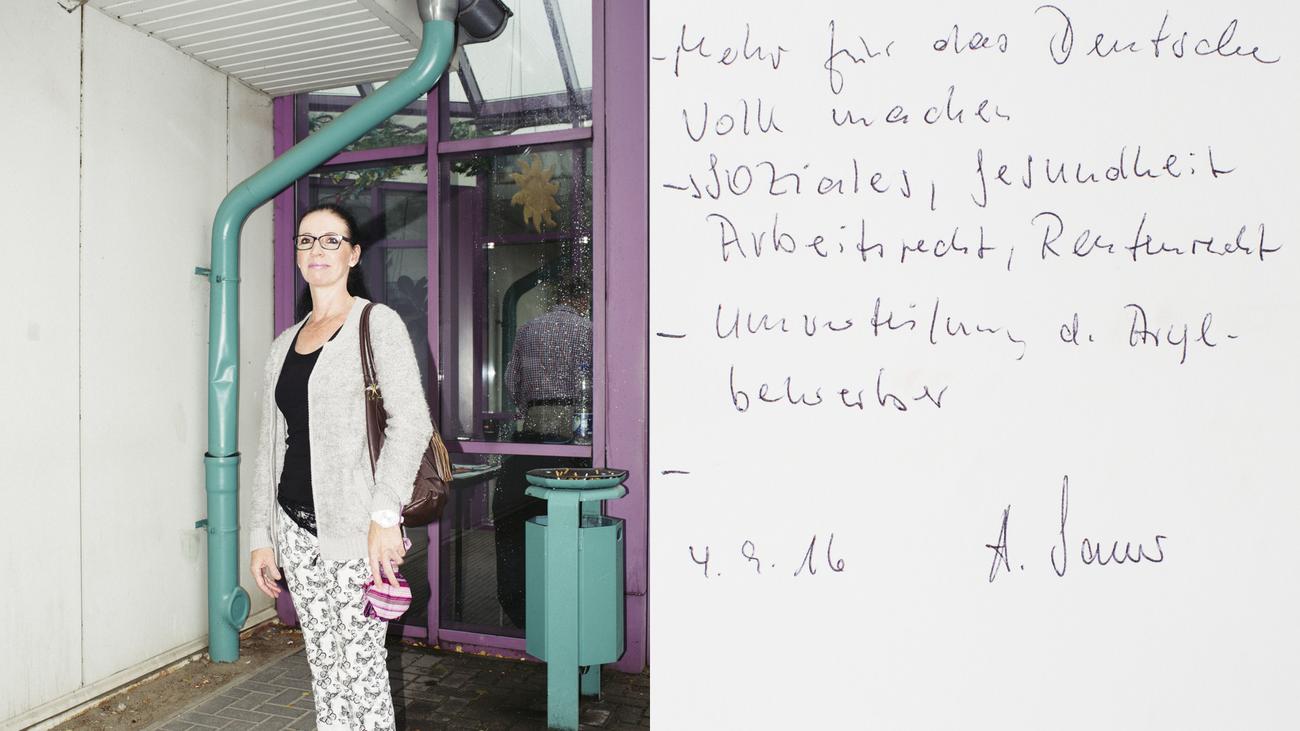 - Mehr für das Deutsche
Volk machen
- Soziales, Gesundheit
Arbeitsrecht, Rentenrecht
- Umverteilung d. Asyl-
bewerber
-
4.9.16 A.